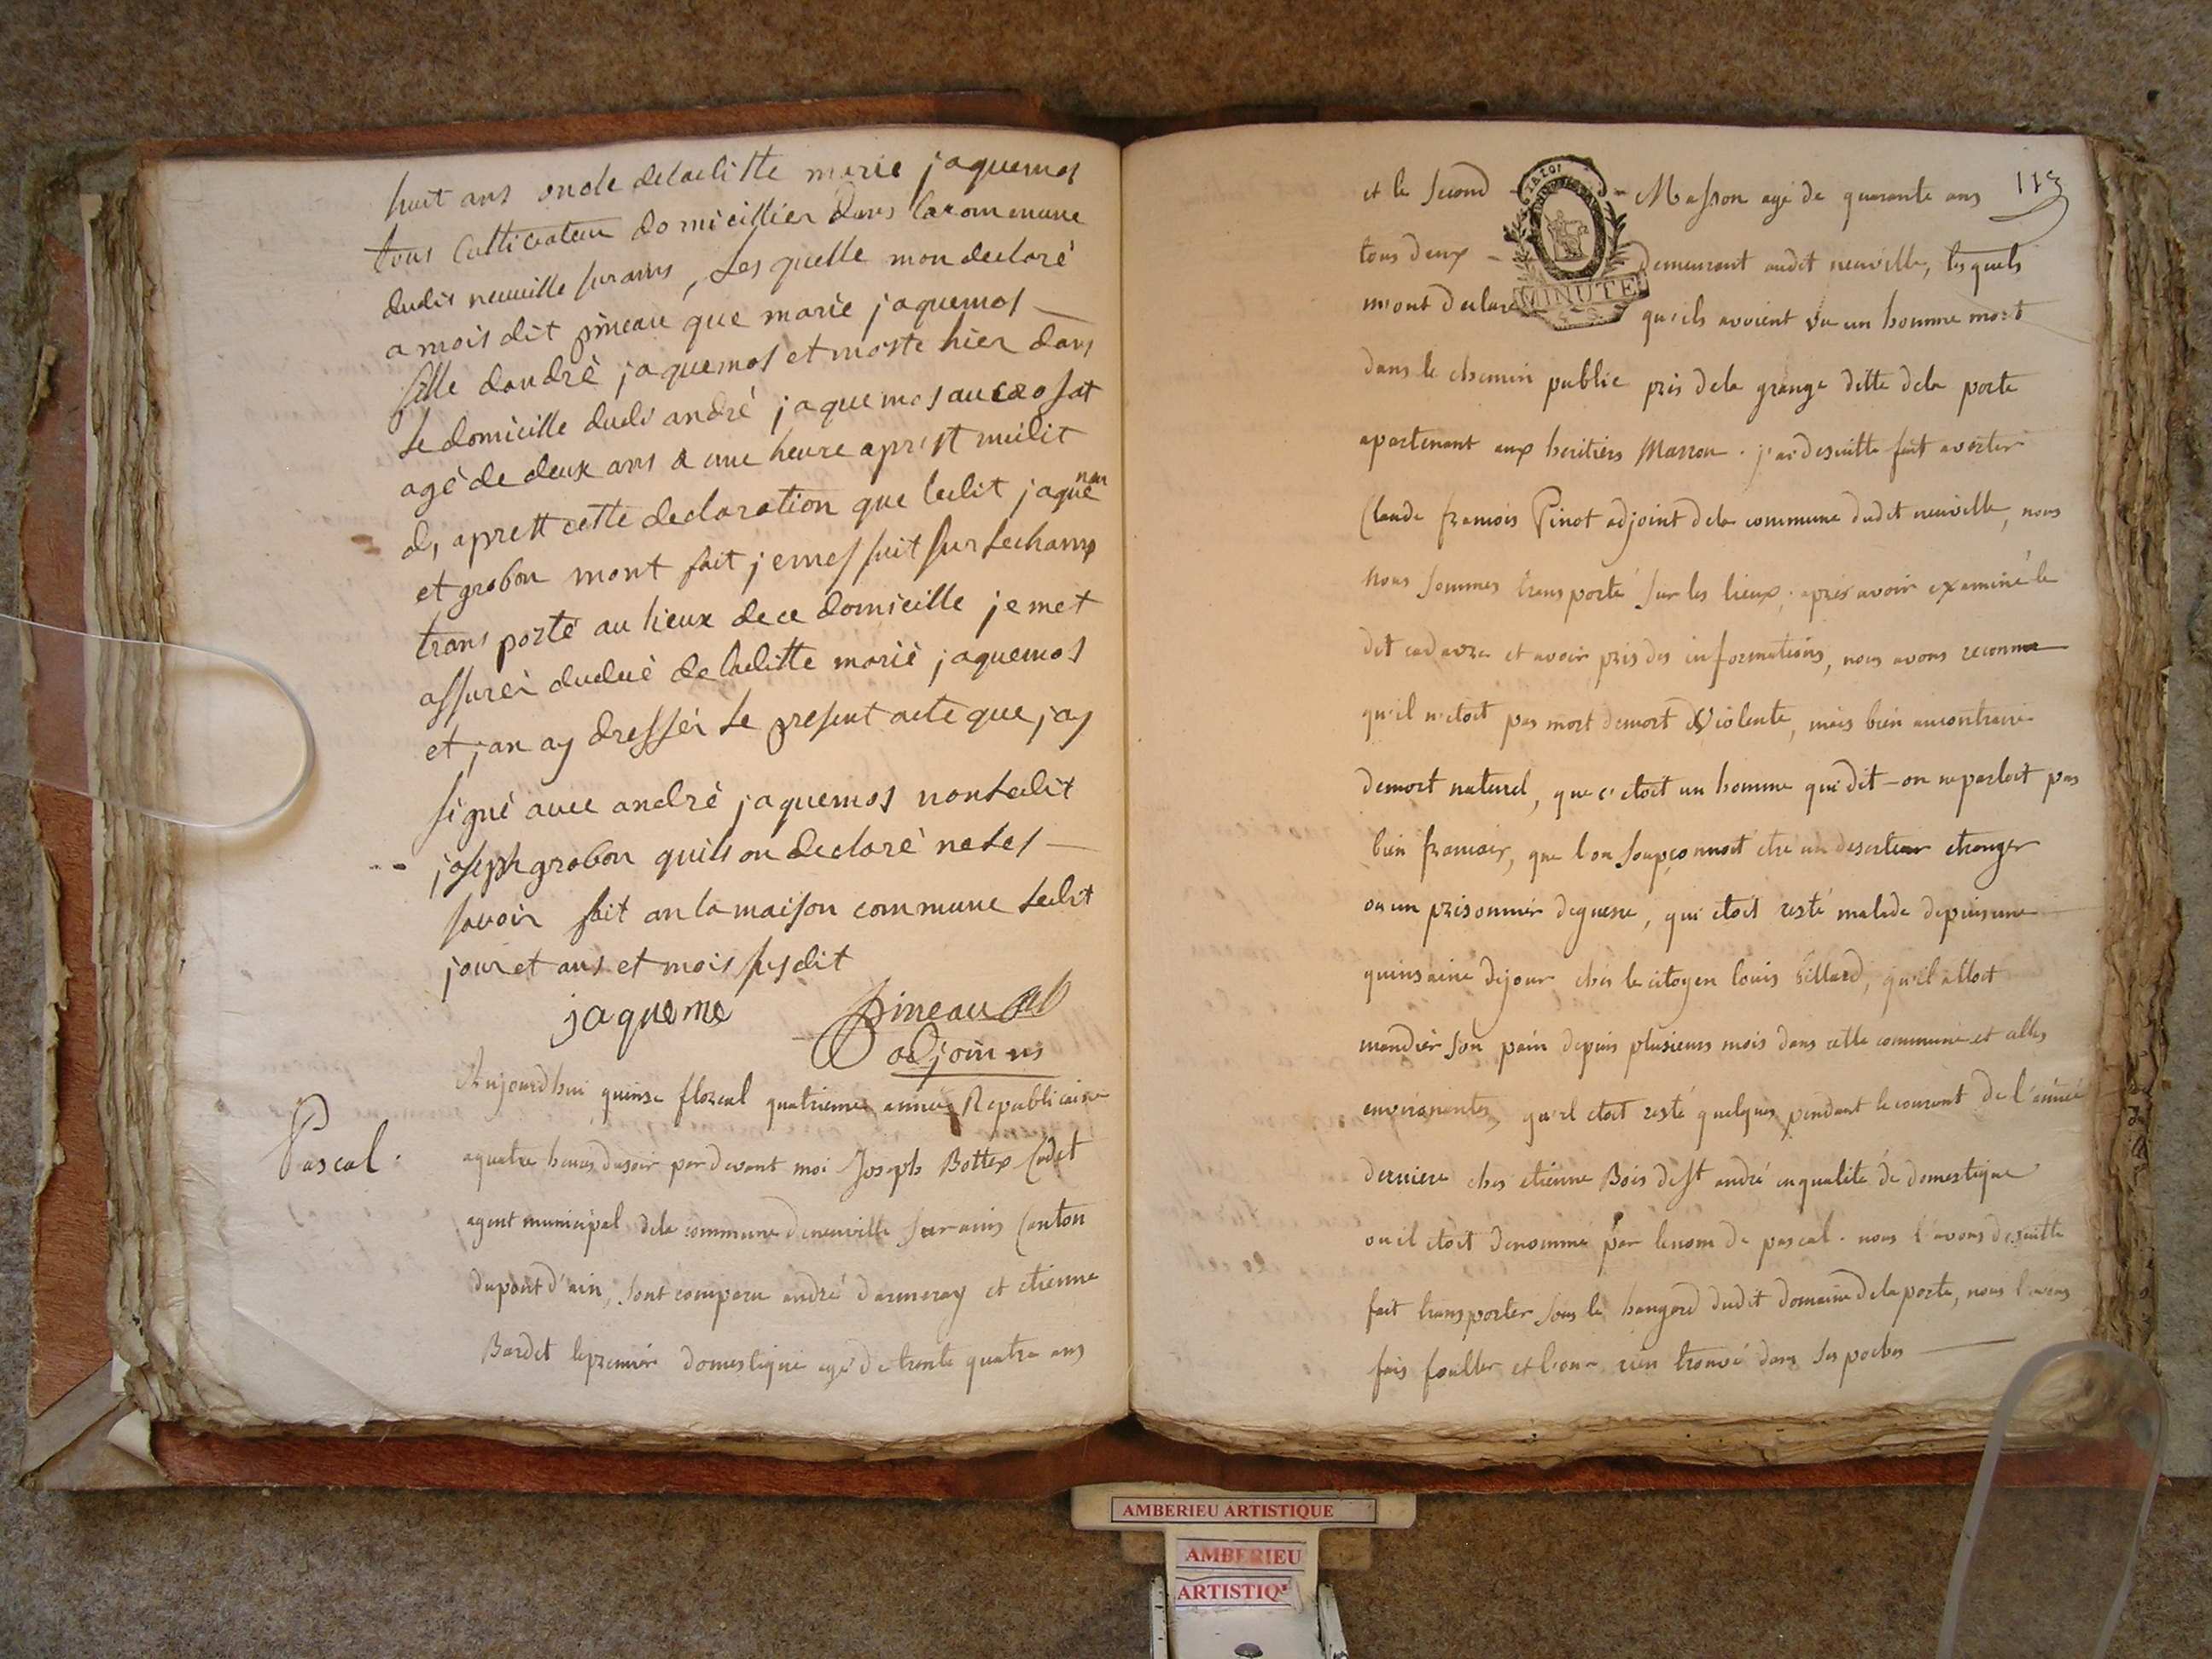 huit ans oncle deladitte marie jaquemos
tous Culticateur domicillier dans lacommune
dudis neuville surains, Les quelle mon declaré
a mois dit pineau que marie jaquemos
fille dandré jaquemos et morte hier dans
Le domicille dudi andré jaquemos au crosat
agé de deux ans a une heure aprest midit
d, aprest cette declaration que ledit jaque
et grobon mont fait jemes suit sur Lechamp
trans porté au lieux de ce domicille je met
assurer dudué de laditte marie jaquemos
et jan ay dresser Le present acte que jay
signé avec andré jaquemos non Ledit
joseph grobon quils on declaré neles
savoir fait an la maison commune Ledit
jour et ans et mois susdit
jaqueme pineau
adjoin ns
Pascal.
Aujourdhui quinse floreal quatrieme année Republicaine
aquatre heures dusoir par devant moi Joseph Bottex Cadet
agent municipal dela commune deneuville sur ains Canton
dupont d'ain, sont comparu andré darmeray et etienne
Bardet lepremier domestique agé de trente quatre ans
113
et le second Masson agé de quarante ans
tous deux demeurant audit neuville, lesquels
m'ont declaré qu'ils avoient vu un homme mort
MINUTE
dans le chemin public pris dela grange ditte dela porte
apartenant aux heritiers Marron. j'ai desuitte fait avertir
Claude francois Pinot adjoint dela commune dudit neuville, nous
nous sommes transporté sur les lieux, après avoir examiné le
dit cadavre et avoir pris des informations, nous avons reconnu
qu'il n'étoit pas mort demort violente, mais bien aucontraire
demort naturel, que c'etoit un homme qui dit-on neparloit pas
bien francais, que l'on soupçonnoit etre un deserteur etranger
ou un prisonnier deguerre, qui etoit resté malade depuis une
quinsaine dejour chés le citoyen louis billard, qu'il alloit
mandier son pain depuis plusieurs mois dans cette commune et alles
environantes, qu'il etoit resté quelques pendant lecourant de l'année
derniere chés etienne Bois dest andré enqualité de domestique
ou il etoit denommé par lenom de pascal. nous l'avons desuitte
fait transporter sous le hangard dudit domaine dela porte, nous l'avons
fais fouiller et l'on rien trouvé dans ses poches
AMBERIEU ARTISTIQUE
AMBERIEU
ARTISTIQ